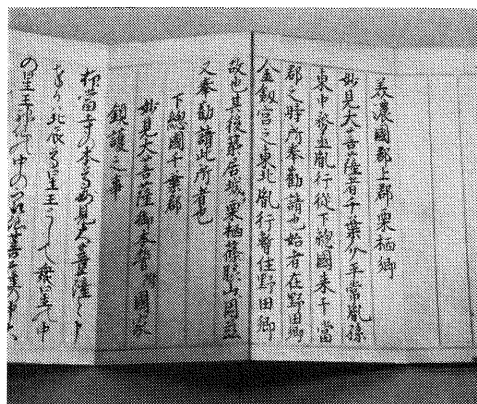 美濃國郡上郡栗栖郷
妙見大菩薩者千葉介平常胤孫
東中務丞胤行從下総國来于當
郡之時所奉勧請也始者在野田郷
金釼宮之東北胤行暫住野田郷
故也其後築居城栗栖篠脇山因茲
又奉勧請此所者也
下総國千葉郡
妙見大菩薩御本誓國家
鎮護之事
抑當寺の本尊妙見大菩薩と申
北辰尊星王
の星王